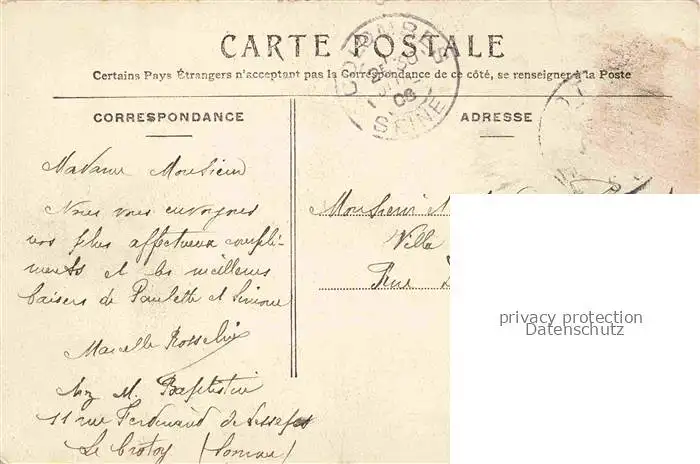 CARTE POSTALE
Certains Pays Étrangers n'acceptant pas la Correspondance de ce côté, se renseigner à la Poste
CORRESPONDANCE
ADRESSE
COLOMBES
08
SEINE
Madame Monsieur
Nous vous envoyons
nos plus affectueux compli-
ments et les meilleurs
baisers de Paulette et Simone
Marcelle Rosselin
chez M. Baptistin
11 rue Ferdinand de Lesseps
Le Crotoy (Somme)
Monsieur
Villa
Rue
privacy protection
Datenschutz